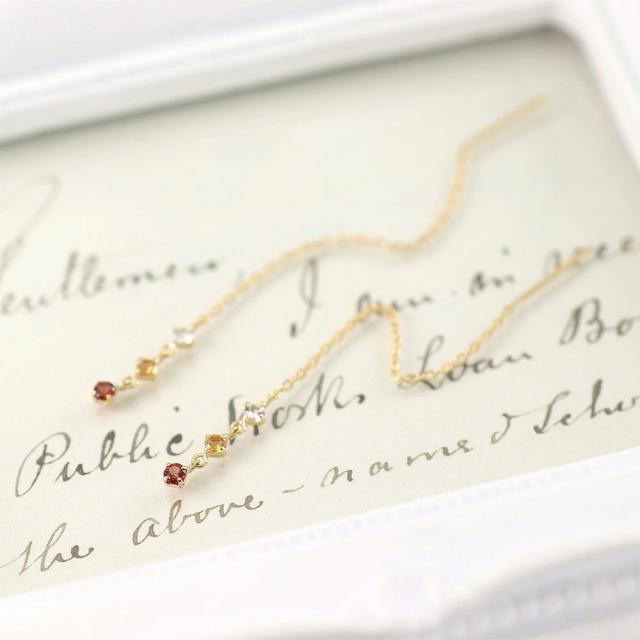 Gentlemen, I am in
Public Works Loan Bo
the above - named Schw